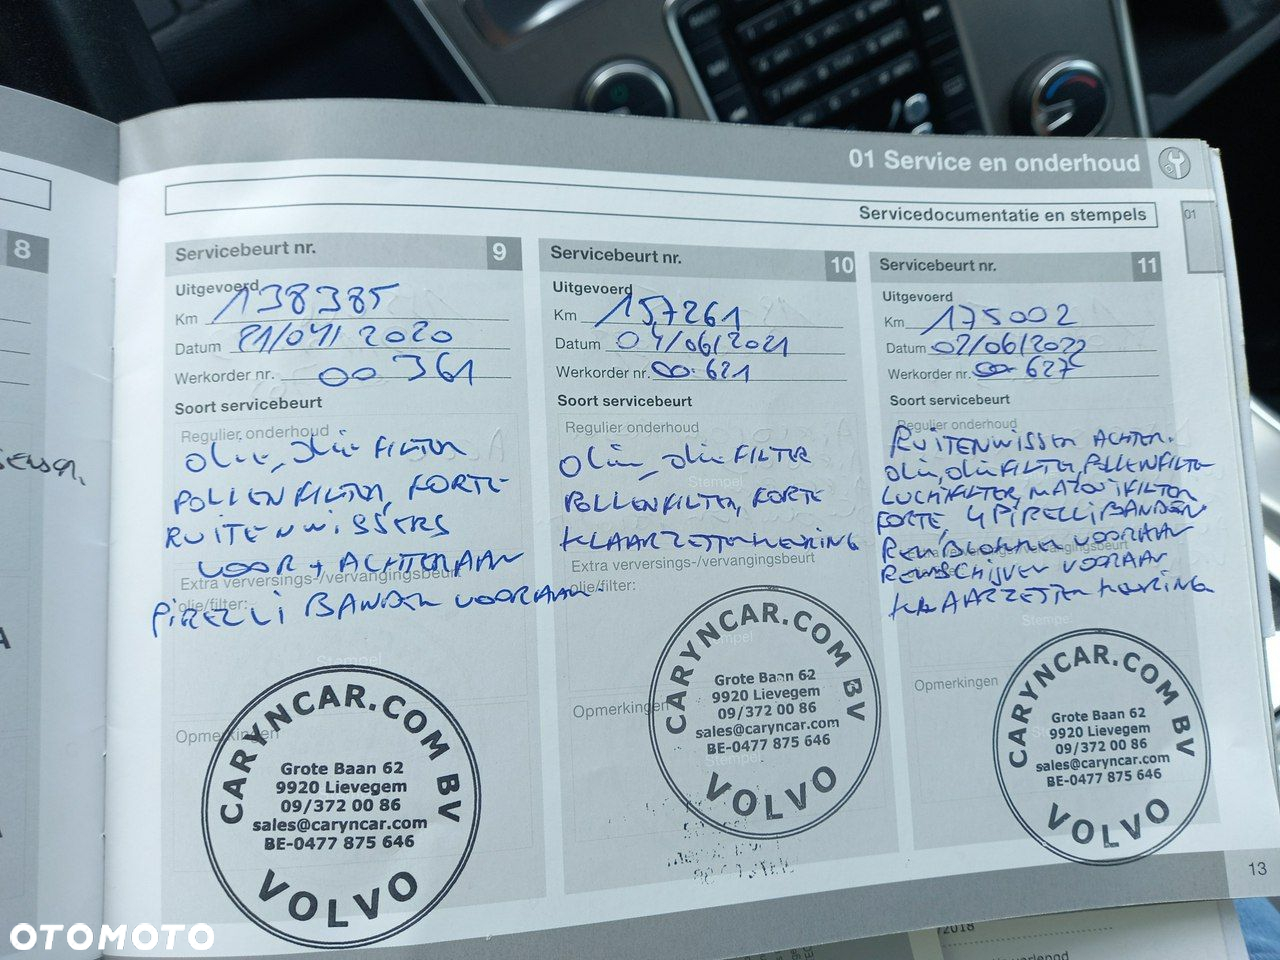 01 Service en onderhoud
Servicedocumentatie en stempels
01
8
Servicebeurt nr. 9
Uitgevoerd
Km 138385
Datum 21/04/2020
Werkorder nr. 00361
Soort servicebeurt
Regulier onderhoud
Olie, oliefilter
Pollenfilter, Forte
Ruitenwissers
voor + achteraan
Extra verversings-/vervangingsbeurt
olie/filter:
Pirelli banden vooraan.
Stempel
Opmerkingen
CARYNCAR.COM BV
Grote Baan 62
9920 Lievegem
09/372 00 86
sales@caryncar.com
BE-0477 875 646
VOLVO
Servicebeurt nr. 10
Uitgevoerd
Km 157261
Datum 04/06/2021
Werkorder nr. 00.621
Soort servicebeurt
Regulier onderhoud
Olie, oliefilter
Stempel
Pollenfilter, Forte
Klaarzetten keuring
Extra verversings-/vervangingsbeurt
olie/filter:
Stempel
Opmerkingen
CARYNCAR.COM BV
Grote Baan 62
9920 Lievegem
09/372 00 86
sales@caryncar.com
BE-0477 875 646
VOLVO
Servicebeurt nr. 11
Uitgevoerd
Km 175002
Datum 02/06/2022
Werkorder nr. 00 627
Soort servicebeurt
Regulier onderhoud
Ruitenwisser achter.
Olie, oliefilter, pollenfilter
Luchtfilter, mazoutfilter
Forte, 4 Pirelli banden
Remblokken vooraan
Extra verversings-/vervangingsbeurt
Remschijven vooraan
olie/filter:
Klaarzetten keuring
Stempel
Opmerkingen
CARYNCAR.COM BV
Grote Baan 62
9920 Lievegem
09/372 00 86
sales@caryncar.com
BE-0477 875 646
VOLVO
13
/2018
OTOMOTO